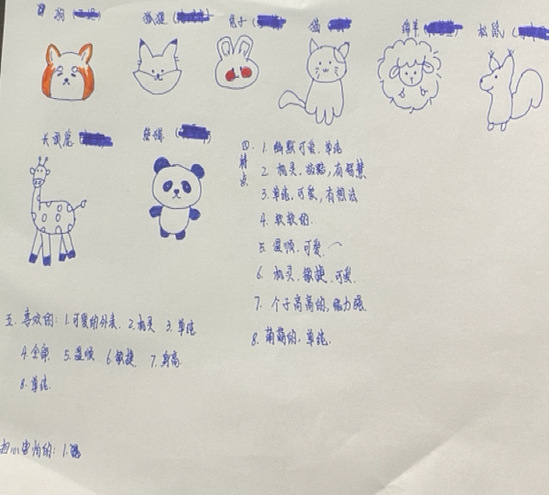 狗 狐狸 兔子 猫 绵羊 松鼠
长颈鹿 熊猫
四. 特点
1. 幽默可爱, 单纯
2. 机灵, 幽默, 有智慧
3. 单纯, 可爱, 有想法
4. 软软的.
5. 温顺, 可爱.
6. 机灵, 敏捷, 可爱.
7. 个子高高的, 能力强.
8. 萌萌的, 单纯.
五. 喜欢的: 1. 可爱的外表. 2. 机灵 3. 单纯
4. 全部. 5. 温顺 6. 敏捷 7. 身高
8. 单纯.
担心害怕的: 1.